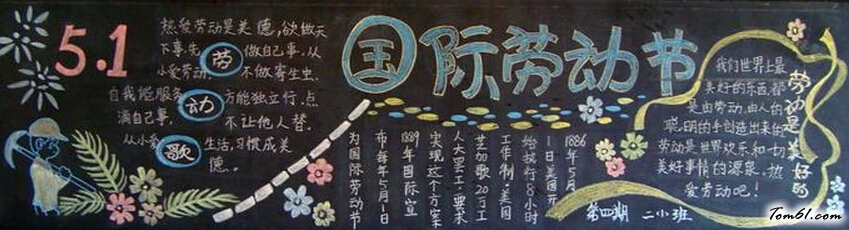 5.1
热爱劳动是美德,欲做天
下事先 劳 做自己事.从
小爱劳动. 不做寄生虫.
自我能服务 动 方能独立行.点
滴自己事. 不让他人替.
从小爱 歌 生活,习惯成美
德.
国际劳动节
1886年5月
1日美国开
始执行8小时
工作制.美国
芝加歌20万工
人大罢工.要求
实现这个方案
1889年国际宣
布每年5月1日
为国际劳动节
我们世界上最
美好的东西,都
是由劳动,由人的
聪明的手创造出来的
劳动是世界欢乐和一切
美好事情的源泉,热
爱劳动吧!
劳动是美好的
第四期 二小班
Tom61.com